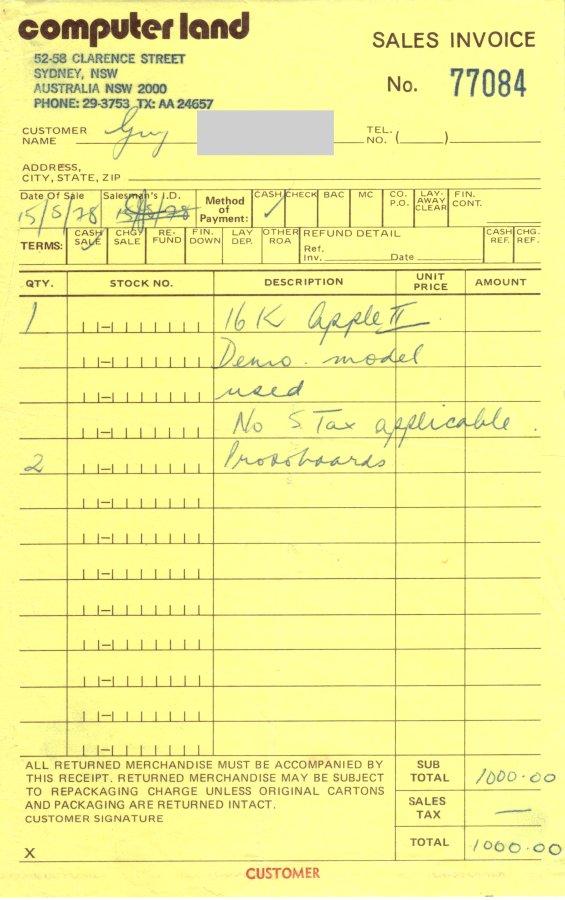 computerland
SALES INVOICE
52-58 CLARENCE STREET
SYDNEY, NSW
AUSTRALIA NSW 2000
PHONE: 29-3753 TX: AA 24657
No. 77084
CUSTOMER NAME Guy
TEL. NO. ( )
ADDRESS,
CITY, STATE, ZIP
Date Of Sale Salesman's I.D. Method of Payment: CASH CHECK BAC MC CO. P.O. LAY-AWAY CLEAR FIN. CONT.
15/5/78 15/5/78 ✓
TERMS: CASH SALE CHG SALE RE-FUND FIN. DOWN LAY DEP. OTHER ROA REFUND DETAIL CASH REF. CHG. REF.
✓ Ref. Inv. Date
QTY. STOCK NO. DESCRIPTION UNIT PRICE AMOUNT
1 16K Apple II
Demo. model
used
No S Tax applicable.
2 Protoboards
ALL RETURNED MERCHANDISE MUST BE ACCOMPANIED BY
THIS RECEIPT. RETURNED MERCHANDISE MAY BE SUBJECT
TO REPACKAGING CHARGE UNLESS ORIGINAL CARTONS
AND PACKAGING ARE RETURNED INTACT.
CUSTOMER SIGNATURE
X
SUB TOTAL 1000.00
SALES TAX —
TOTAL 1000.00
CUSTOMER